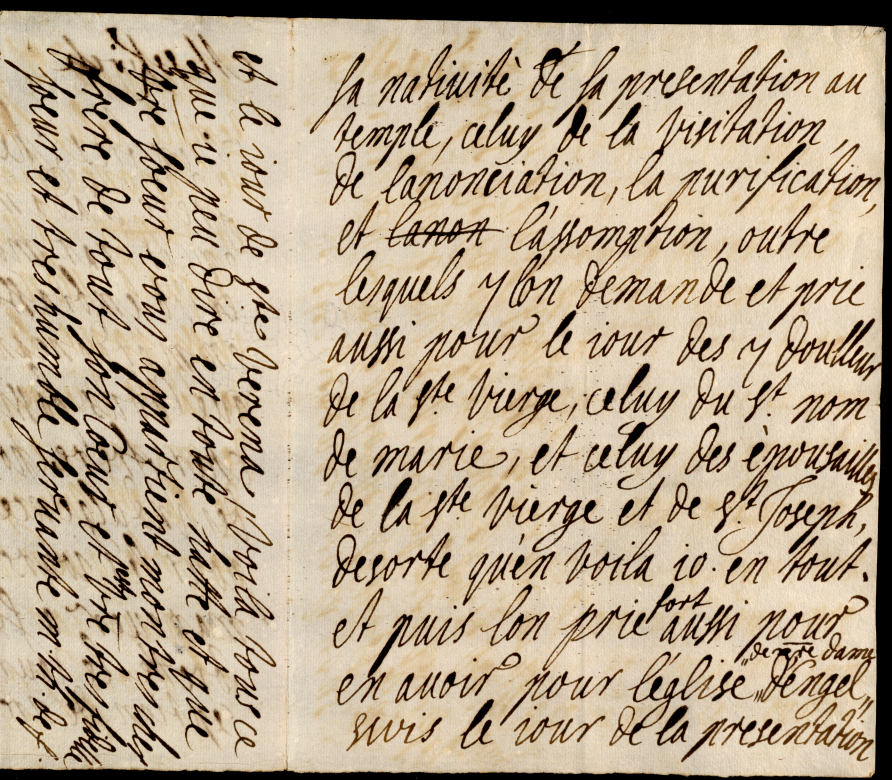 sa nativité de sa presentation au
temple, celuy de la visitation,
de lanonciation, la purification,
et lanon l'assomption, outre
lesquels 7 lon demande et prie
aussi pour le iour des 7 doulleur
de la ste vierge, celuy du st. nom
de marie, et celuy des épousailles
de la ste vierge et de st. Joseph,
desorte qu'en voila 10. en tout.
et puis lon prie fort aussi pour
en avoir pour l'église de nre dame "d'engel
suis le iour de la presentation
et le iour de ste verena, voila tous ce
que ie peu dire en toute hatte et que
tre soeur vous appartient mon tres cher
frère de tout son coeur et reste vre tres fidelle
soeur et tres humble servande m. th. des.